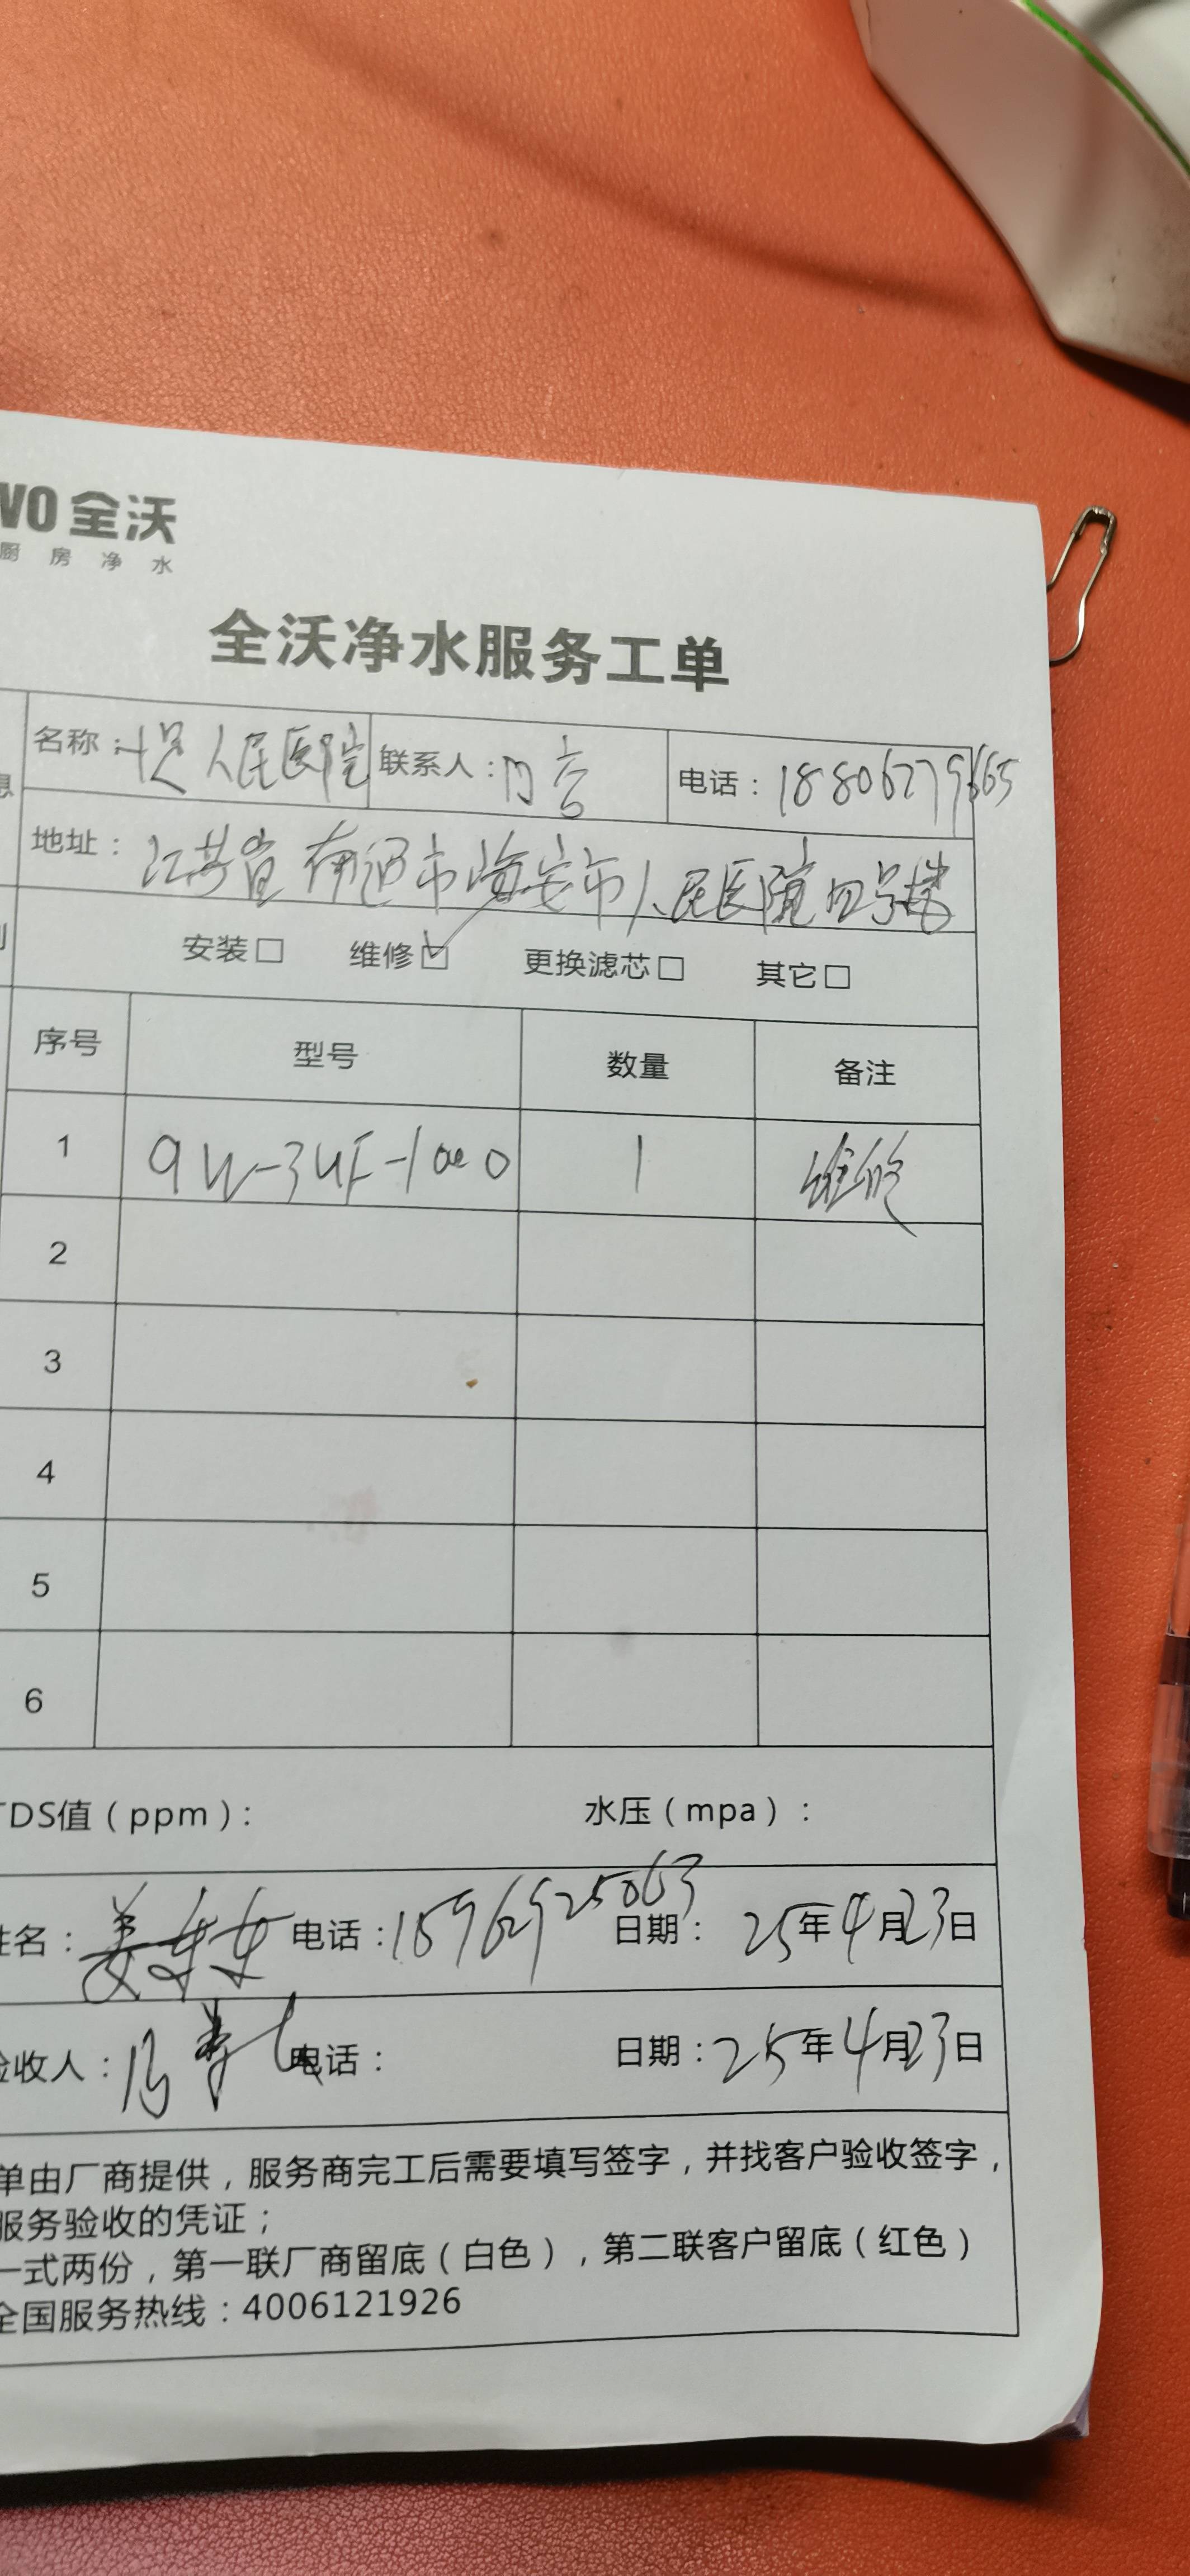 VO 全沃
厨房净水
全沃净水服务工单
名称: 人民医院 联系人: 电话: 18806279665
地址: 江苏省南通市海安市人民医院四号楼
安装□ 维修☑ 更换滤芯□ 其它□
序号 型号 数量 备注
1 QW-3UF-1000 1 维修
2
3
4
5
6
TDS值(ppm): 水压(mpa):
姓名: 电话: 1596925063 日期: 25年4月23日
验收人: 冯 电话: 日期: 25年4月23日
单由厂商提供,服务商完工后需要填写签字,并找客户验收签字,
服务验收的凭证;
一式两份,第一联厂商留底(白色),第二联客户留底(红色)
全国服务热线:4006121926